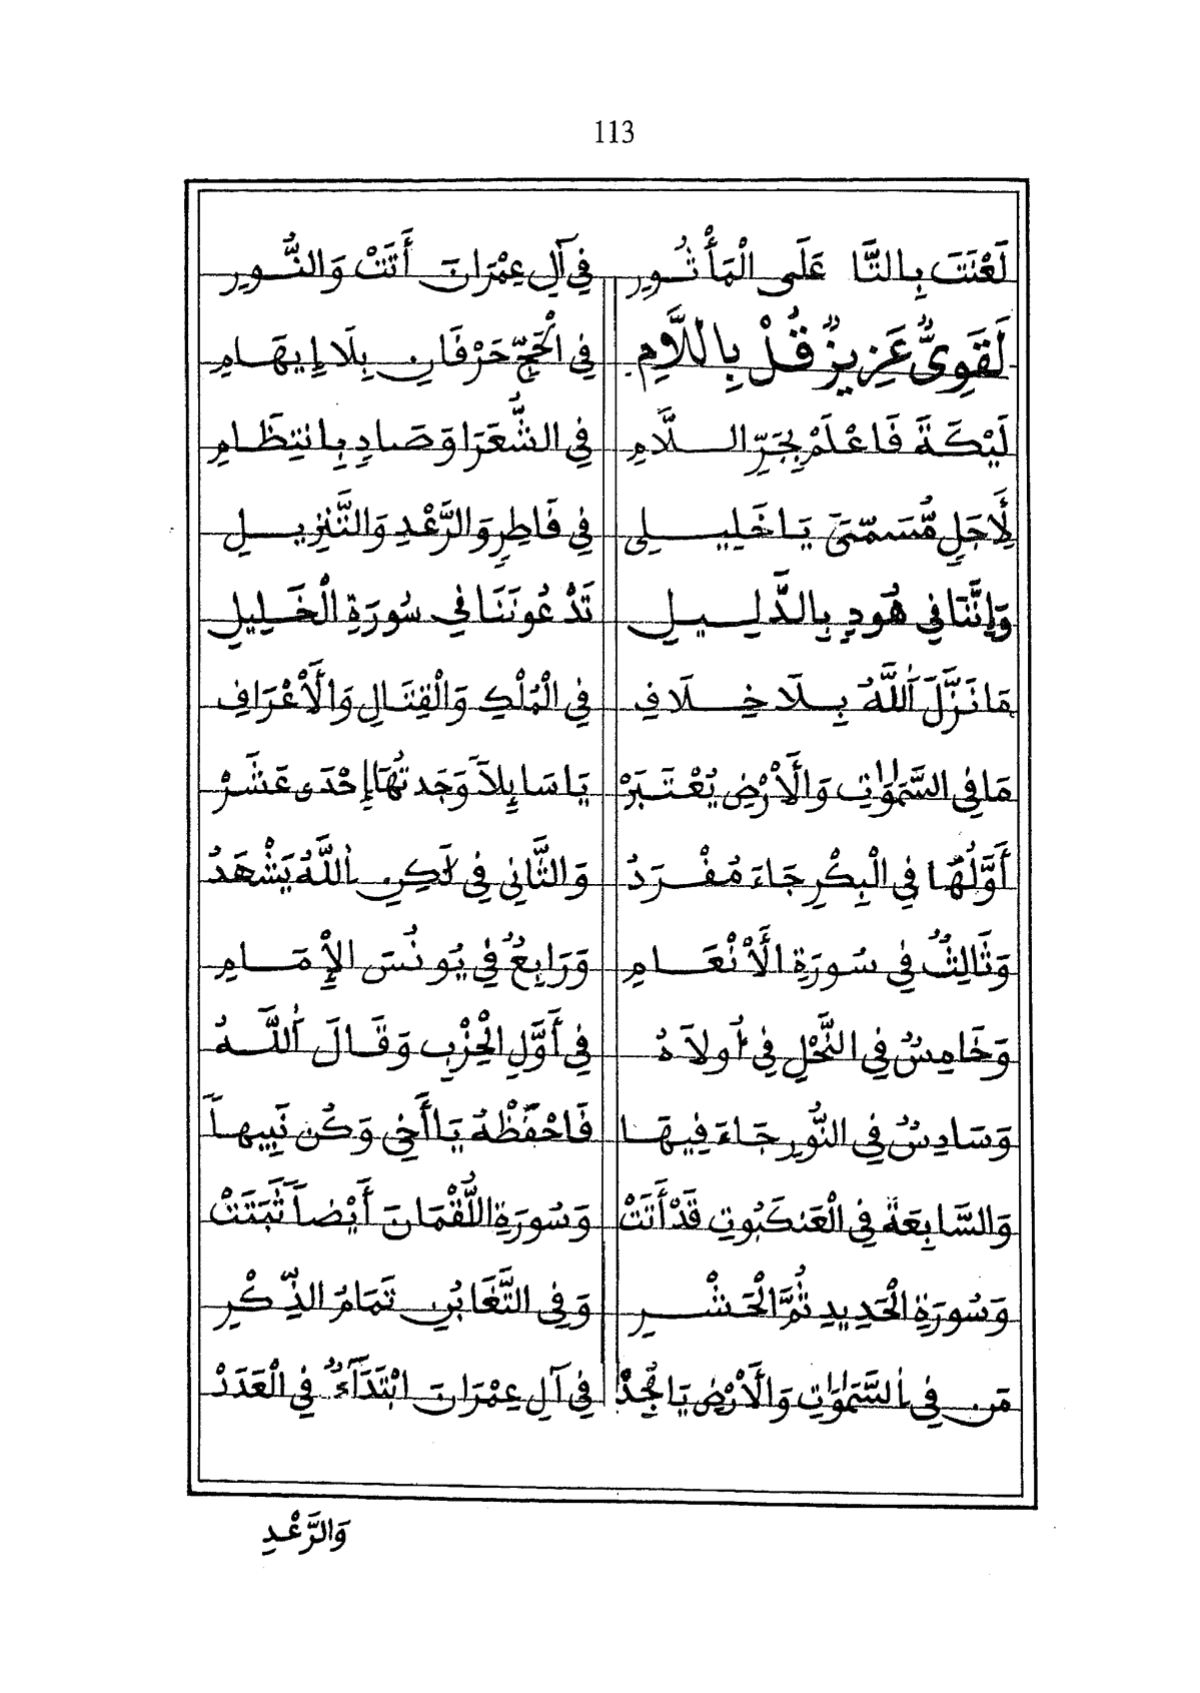 113
لَعْنَتَ بِالتَّا عَلَى الْمَأْثُورِ فِي آلِ عِمْرَانَ أَتَتْ وَالنُّورِ
لَقَوِيٌّ عَزِيزٌ قُلْ بِاللَّامِ فِي الْحَجِّ حَرْفَانِ بِلَا إِيهَامِ
لَيْكَةَ فَاعْلَمْ بِجَرِّ اللَّامِ فِي الشُّعَرَا وَصَادِ بِانْتِظَامِ
لِأَجَلٍ مُّسَمًّى يَا خَلِيلِى فِي فَاطِرِ وَالرَّعْدِ وَالتَّنْزِيلِ
وَإِنَّنَا فِي هُودٍ بِالدَّلِيلِ تَدْعُونَنَا فِي سُورَةِ الْخَلِيلِ
مَا نَزَّلَ اَللَّهُ بِلَا خِلَافِ فِي الْمُلْكِ وَالْقِتَالِ وَالْأَعْرَافِ
مَا فِي السَّمَٰوَٰتِ وَالْأَرْضِ يُعْتَبَرْ يَا سَايِلاً وَجَدتُهَا إِحْدَى عَشَرْ
أَوَّلُهَا فِي الْبِكْرِ جَاءَ مُفْرَدُ وَالثَّانِي فِي لَٰكِنِ اِللَّهُ يَشْهَدُ
وَثَالِثٌ فِي سُورَةِ الْأَنْعَامِ وَرَابِعٌ فِي يُونُسَ الْإِمَامِ
وَخَامِسٌ فِي النَّحْلِ فِي أُولَاهُ فِي أَوَّلِ الْحِزْبِ وَقَالَ اَللَّهُ
وَسَادِسٌ فِي النُّورِ جَاءَ فِيهَا فَاحْفَظْهُ يَا أَخِي وَكُن نَبِيهاً
وَالسَّابِعَةُ فِي الْعَنكَبُوتِ قَدْ أَتَتْ وَسُورَةِ اللُّقْمَانَ أَيْضاً ثَبَتَتْ
وَسُورَةِ الْحَدِيدِ ثُمَّ الْحَشْرِ وَفِي التَّغَابُنِ تَمَامُ الذِّكْرِ
مَن فِي اِلسَّمَٰوَٰتِ وَالْأَرْضِ يَا مُجِدْ فِي آلِ عِمْرَانَ ابْتِدَاءٌ فِي الْعَدَدْ
وَالرَّعْدِ